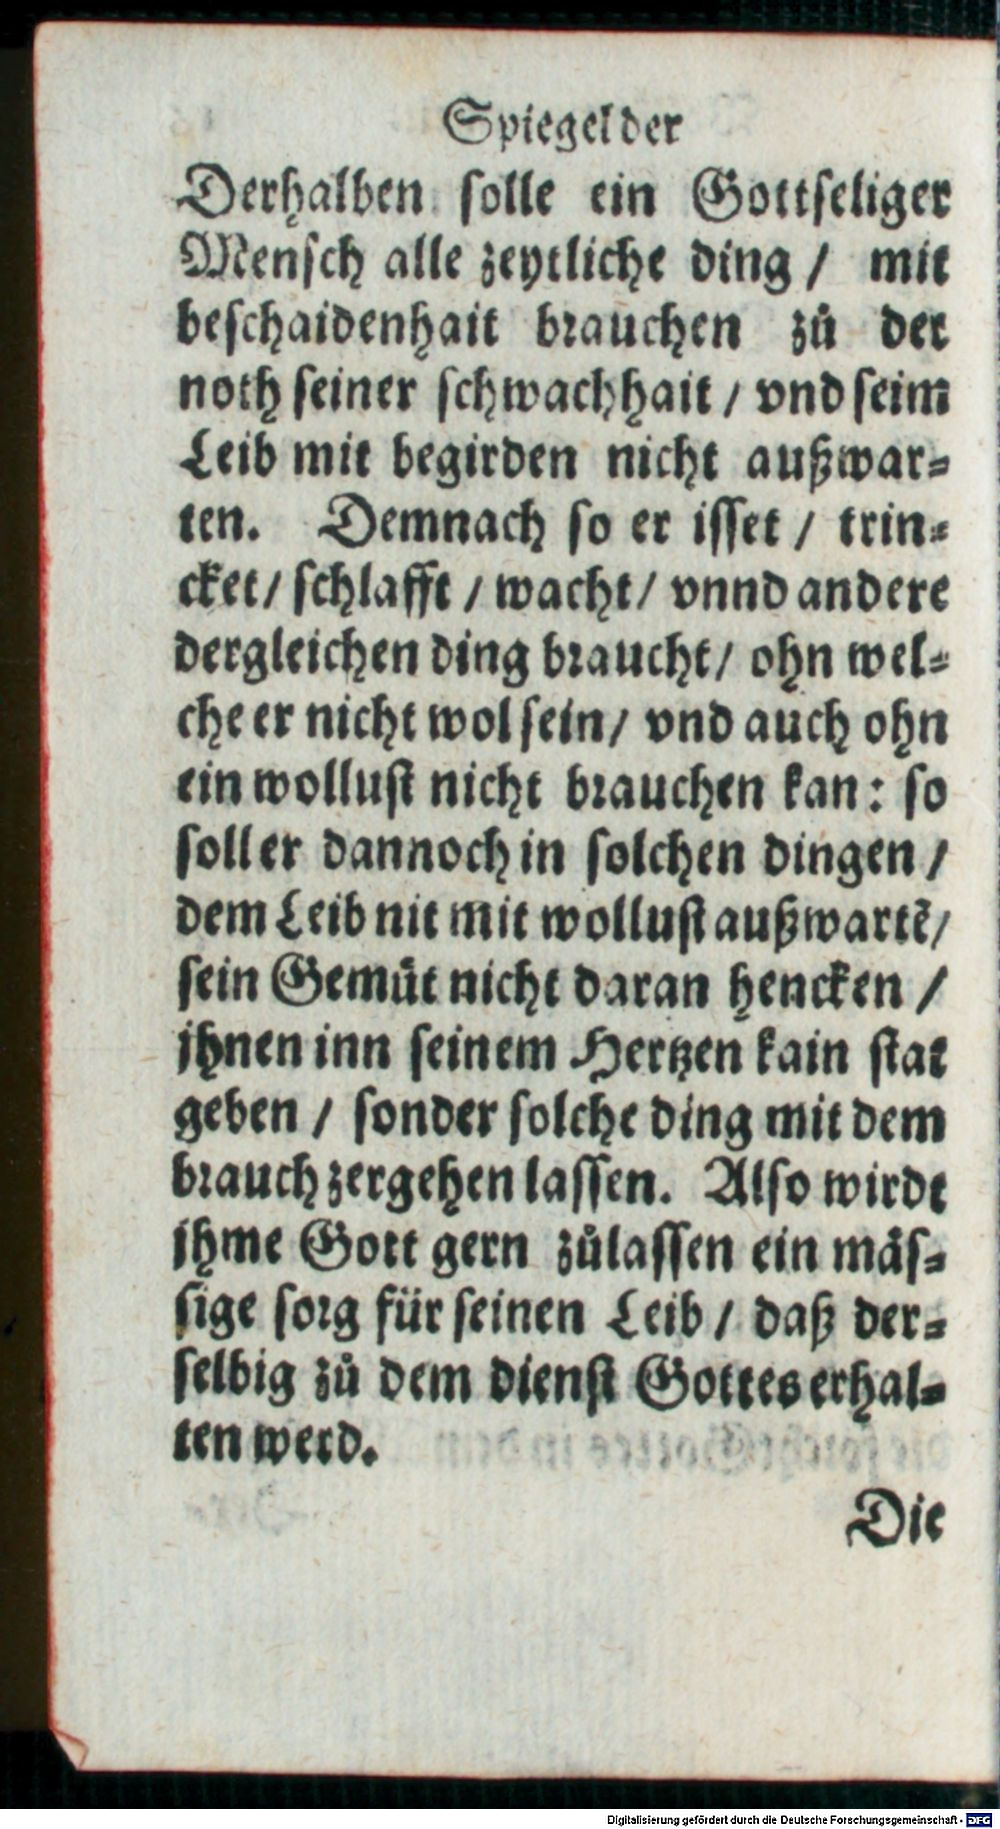 Spiegel der
Derhalben solle ein Gottseliger
Mensch alle zeytliche ding / mit
beschaidenhait brauchen zů der
noth seiner schwachhait / vnd seim
Leib mit begirden nicht außwar-
ten. Demnach so er isset / trin-
cket / schlafft / wacht / vnnd andere
dergleichen ding braucht / ohn wel-
che er nicht wol sein / vnd auch ohn
ein wollust nicht brauchen kan : so
soll er dannoch in solchen dingen /
dem Leib nit mit wollust außwartẽ /
sein Gemüt nicht daran hencken /
jhnen inn seinem Hertzen kain stat
geben / sonder solche ding mit dem
brauch zergehen lassen. Also wirdt
jhme Gott gern zůlassen ein mäs-
sige sorg für seinen Leib / daß der-
selbig zů dem dienst Gottes erhal-
ten werd.
Die
Digitalisierung gefördert durch die Deutsche Forschungsgemeinschaft - DFG